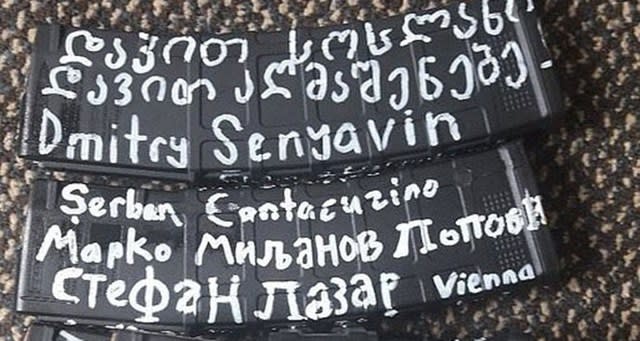 დავით სოსლან
დავით აღმაშენებე
Dmitry Senyavin
Şerban Cantacuzino
Марко Миљанов Попови
Стефан Лазар Vienna